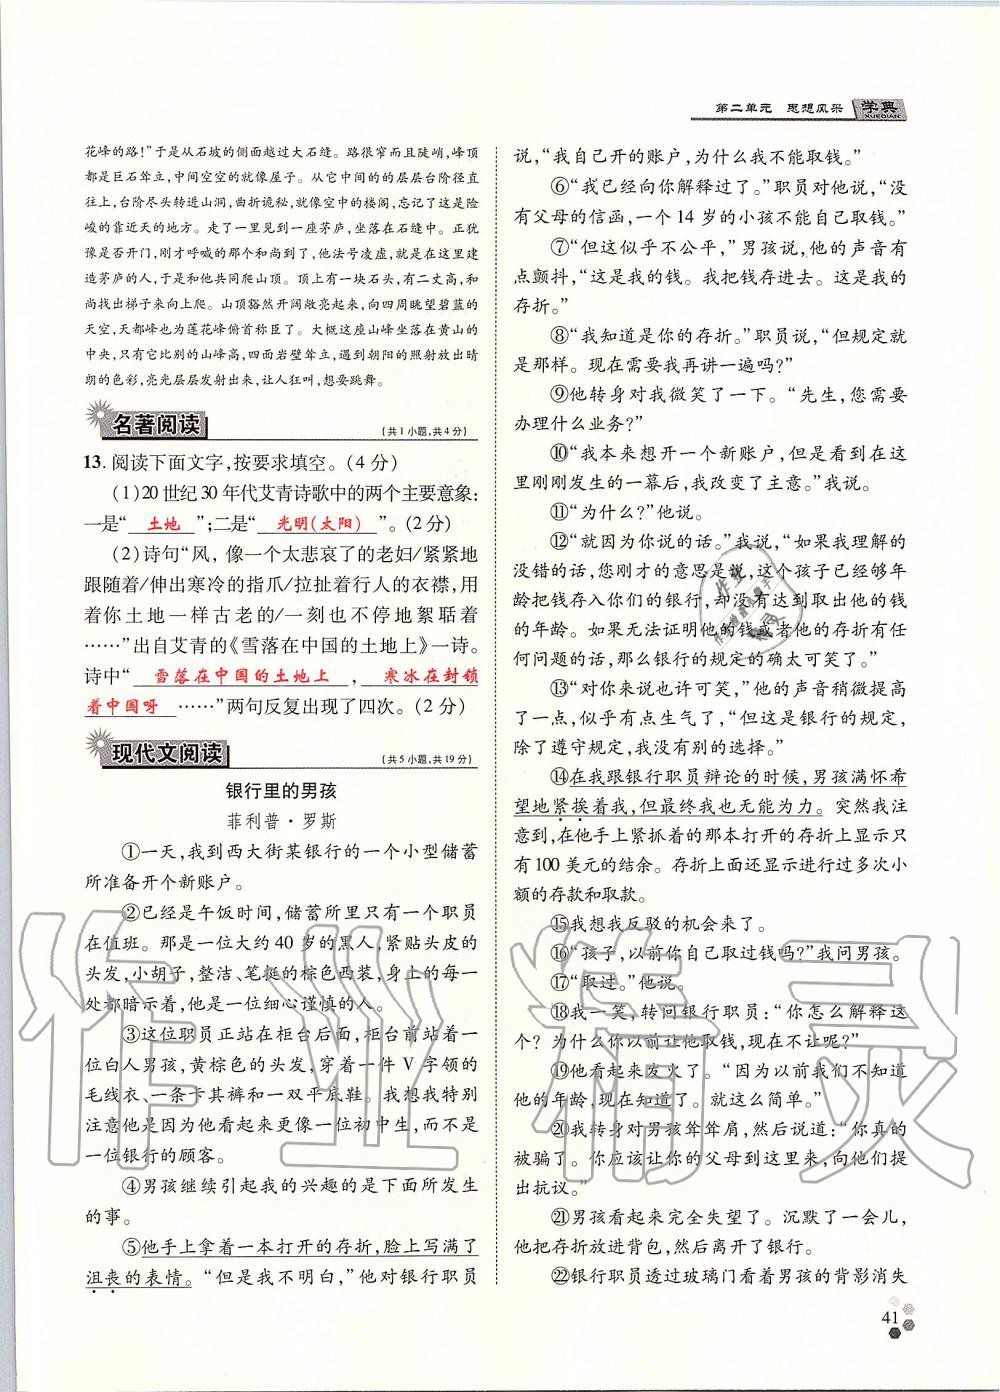 第二单元 思想风采 学典
XUEDIAN
花峰的路!”于是从石坡的侧面越过大石缝。路很窄而且陡峭,峰顶
都是巨石耸立,中间空空的就像屋子。从它中间的的层层台阶径直
往上,台阶尽头转进山洞,曲折诡秘,就像空中的楼阁,忘记了这是险
峻的靠近天的地方。走了一里见到一座茅庐,坐落在石缝中。正犹
豫是否开门,刚才呼喊的那个和尚到了,他法号凌虚,就是在这里建
造茅庐的人,于是和他共同爬山顶。顶上有一块石头,有二丈高,和
尚找出梯子来向上爬。山顶豁然开阔敞亮起来,向四周眺望碧蓝的
天空,天都峰也为莲花峰俯首称臣了。大概这座山峰坐落在黄山的
中央,只有它比别的山峰高,四面岩壁耸立,遇到朝阳的照射放出晴
朗的色彩,亮光层层发射出来,让人狂叫,想要跳舞。
名著阅读 (共1小题,共4分)
13. 阅读下面文字,按要求填空。(4分)
(1)20世纪30年代艾青诗歌中的两个主要意象:
一是“ 土地 ”;二是“ 光明(太阳) ”。(2分)
(2)诗句“风,像一个太悲哀了的老妇/紧紧地
跟随着/伸出寒冷的指爪/拉扯着行人的衣襟,用
着你土地一样古老的/一刻也不停地絮聒着
……”出自艾青的《雪落在中国的土地上》一诗。
诗中“ 雪落在中国的土地上 , 寒冰在封锁
着中国呀 ……”两句反复出现了四次。(2分)
现代文阅读 (共5小题,共19分)
银行里的男孩
菲利普·罗斯
①一天,我到西大街某银行的一个小型储蓄
所准备开个新账户。
②已经是午饭时间,储蓄所里只有一个职员
在值班。那是一位大约40岁的黑人,紧贴头皮的
头发,小胡子,整洁、笔挺的棕色西装,身上的每一
处都暗示着,他是一位细心谨慎的人。
③这位职员正站在柜台后面,柜台前站着一
位白人男孩,黄棕色的头发,穿着一件V字领的
毛线衣、一条卡其裤和一双平底鞋。我想我特别
注意他是因为他看起来更像一位初中生,而不是
一位银行的顾客。
④男孩继续引起我的兴趣的是下面所发生
的事。
⑤他手上拿着一本打开的存折,脸上写满了
沮丧的表情。“但是我不明白,”他对银行职员
说,“我自己开的账户,为什么我不能取钱。”
⑥“我已经向你解释过了。”职员对他说,“没
有父母的信函,一个14岁的小孩不能自己取钱。”
⑦“但这似乎不公平,”男孩说,他的声音有
点颤抖,“这是我的钱。我把钱存进去。这是我的
存折。”
⑧“我知道是你的存折。”职员说,“但规定就
是那样。现在需要我再讲一遍吗?”
⑨他转身对我微笑了一下。“先生,您需要
办理什么业务?”
⑩“我本来想开一个新账户,但是看到在这
里刚刚发生的一幕后,我改变了主意。”我说。
⑪“为什么?”他说。
⑫“就因为你说的话。”我说,“如果我理解的
没错的话,您刚才的意思是说,这个孩子已经够年
龄把钱存入你们的银行,却没有达到取出他的钱
的年龄。如果无法证明他的钱或者他的存折有任
何问题的话,那么银行的规定的确太可笑了。”
⑬“对你来说也许可笑,”他的声音稍微提高
了一点,似乎有点生气了,“但这是银行的规定,
除了遵守规定,我没有别的选择。”
⑭在我跟银行职员辩论的时候,男孩满怀希
望地紧挨着我,但最终我也无能为力。突然我注
意到,在他手上紧抓着的那本打开的存折上显示只
有100美元的结余。存折上面还显示进行过多次小
额的存款和取款。
⑮我想我反驳的机会来了。
⑯“孩子,以前你自己取过钱吗?”我问男孩。
⑰“取过。”他说。
⑱我一笑,转问银行职员:“你怎么解释这
个?为什么你以前让他取钱,现在不让呢?”
⑲他看起来发火了。“因为以前我们不知道
他的年龄,现在知道了。就这么简单。”
⑳我转身对男孩耸耸肩,然后说道:“你真的
被骗了。你应该让你的父母到这里来,向他们提
出抗议。”
㉑男孩看起来完全失望了。沉默了一会儿,
他把存折放进背包,然后离开了银行。
㉒银行职员透过玻璃门看着男孩的背影消失
41
作业精灵